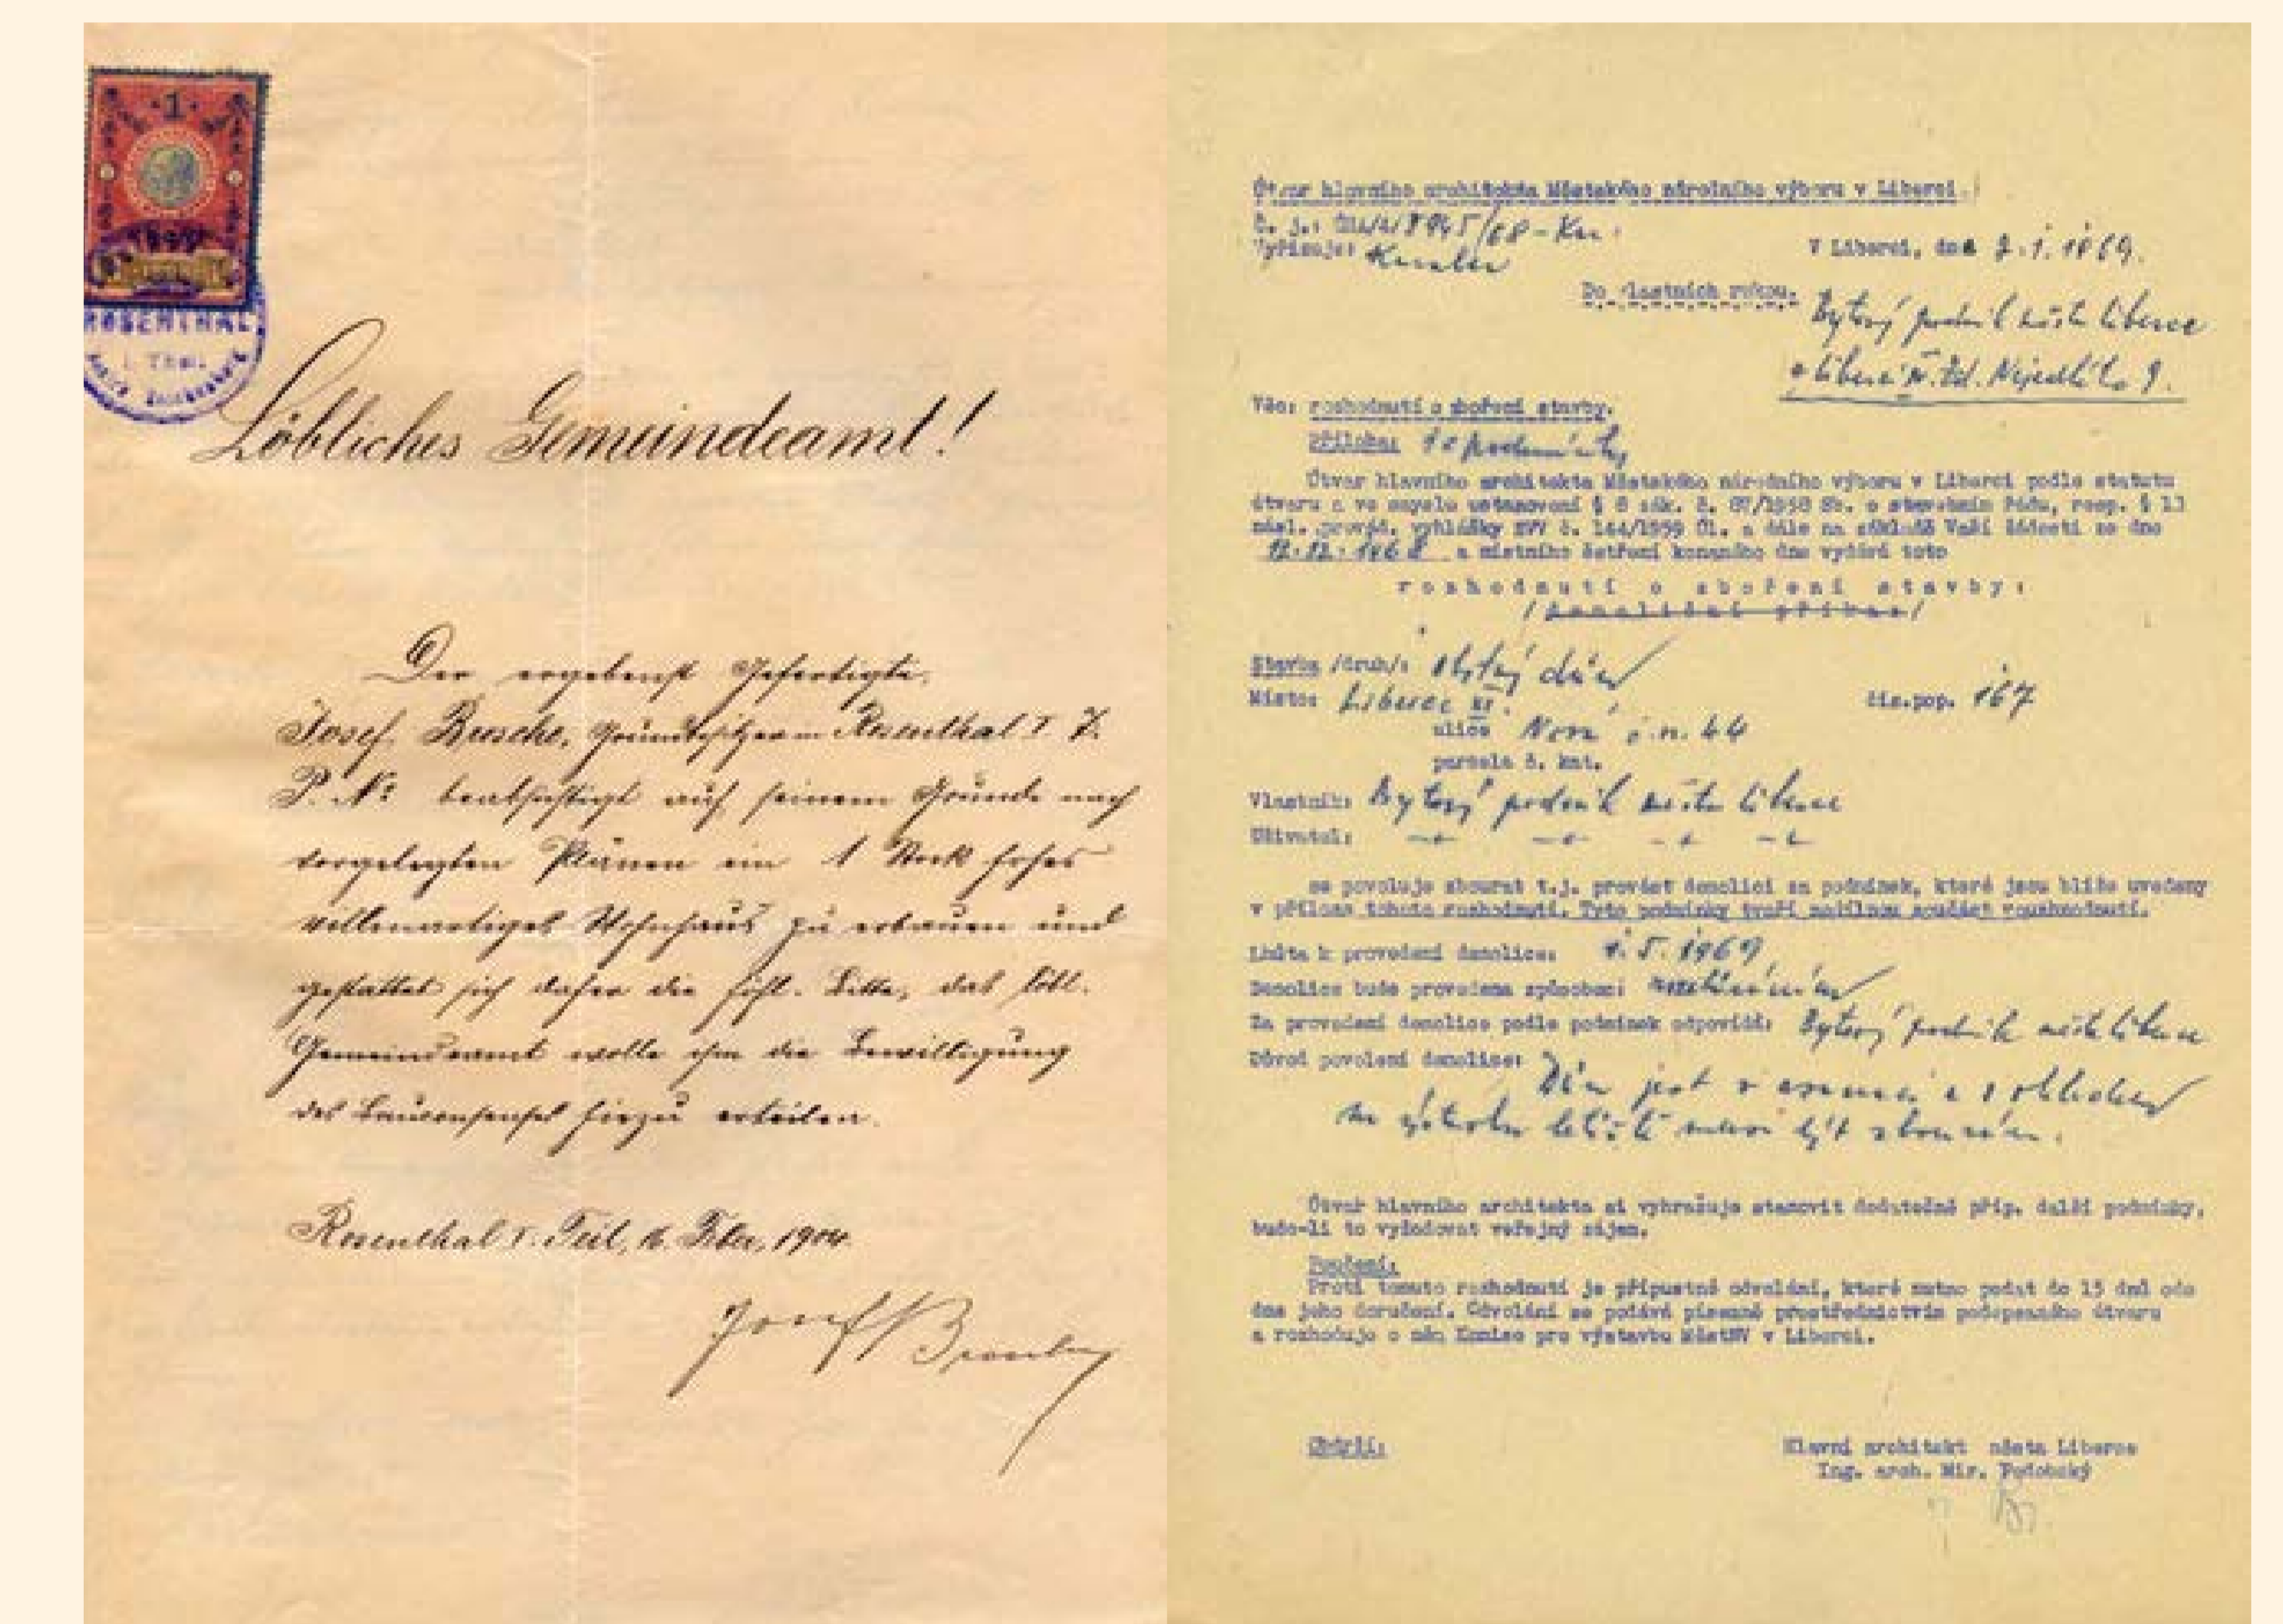 1
ROSENTHAL
I. Theil.
Löbliches Gemeindeamt!
Der ergebenst Gefertigte,
Josef Bresche, Grundbesitzer in Rosenthal I. T.
P. No beabsichtigt auf seinem Grunde nach
vorgelegten Plänen ein 1 Stock hohes
villenartiges Wohnhaus zu erbauen und
gestattet sich daher die höfl. Bitte, das löbl.
Gemeindeamt wolle ihm die Bewilligung
des Bauconsenses hiezu erteilen.
Rosenthal I. Teil, 16. Feber, 1904.
Josef
Útvar hlavního architekta Městského národního výboru v Liberci.
Č. j.: /68-Kn.
Vyřizuje:
V Liberci, dne 2.1.1969.
Do vlastních rukou.
Bytový podnik města Liberce
v Liberci Zd. Nejedlého 9.
Věc: rozhodnutí o zboření stavby.
Příloha: podmínky
Útvar hlavního architekta Městského národního výboru v Liberci podle statutu
útvaru a ve smyslu ustanovení § 8 zák. č. 87/1958 Sb. o stavebním řádu, resp. § 11
násl. provád. vyhlášky č. 144/1959 Úl. a dále na základě Vaší žádosti ze dne
12.12.1968 a místního šetření konaného dne vydává toto
rozhodnutí o zboření stavby:
/demoliční příkaz/
Stavba /druh/: obytný dům
Místo: Liberec XI. čis.pop. 167
ulice Nová č.n. 44
parcela č. kat.
Vlastník: Bytový podnik města Liberce
Uživatel:
se povoluje zbourat t.j. provést demolici za podmínek, které jsou blíže uvedeny
v příloze tohoto rozhodnutí. Tyto podmínky tvoří nedílnou součást rozhodnutí.
Lhůta k provedení demolice: 1.5.1969
Demolice bude provedena způsobem:
Za provedení demolice podle podmínek odpovídá: Bytový podnik města Liberce
Důvod povolení demolice:
Dům jest v asanaci a s ohledem
na výstavbu letiště musí být zbourán.
Útvar hlavního architekta si vyhražuje stanovit dodatečně příp. další podmínky,
bude-li to vyžadovat veřejný zájem.
Poučení:
Proti tomuto rozhodnutí je přípustné odvolání, které nutno podat do 15 dnů ode
dne jeho doručení. Odvolání se podává písemně prostřednictvím podepsaného útvaru
a rozhoduje o něm Komise pro výstavbu MěstNV v Liberci.
Obdrží:
Hlavní architekt města Liberce
Ing. arch. Mir.